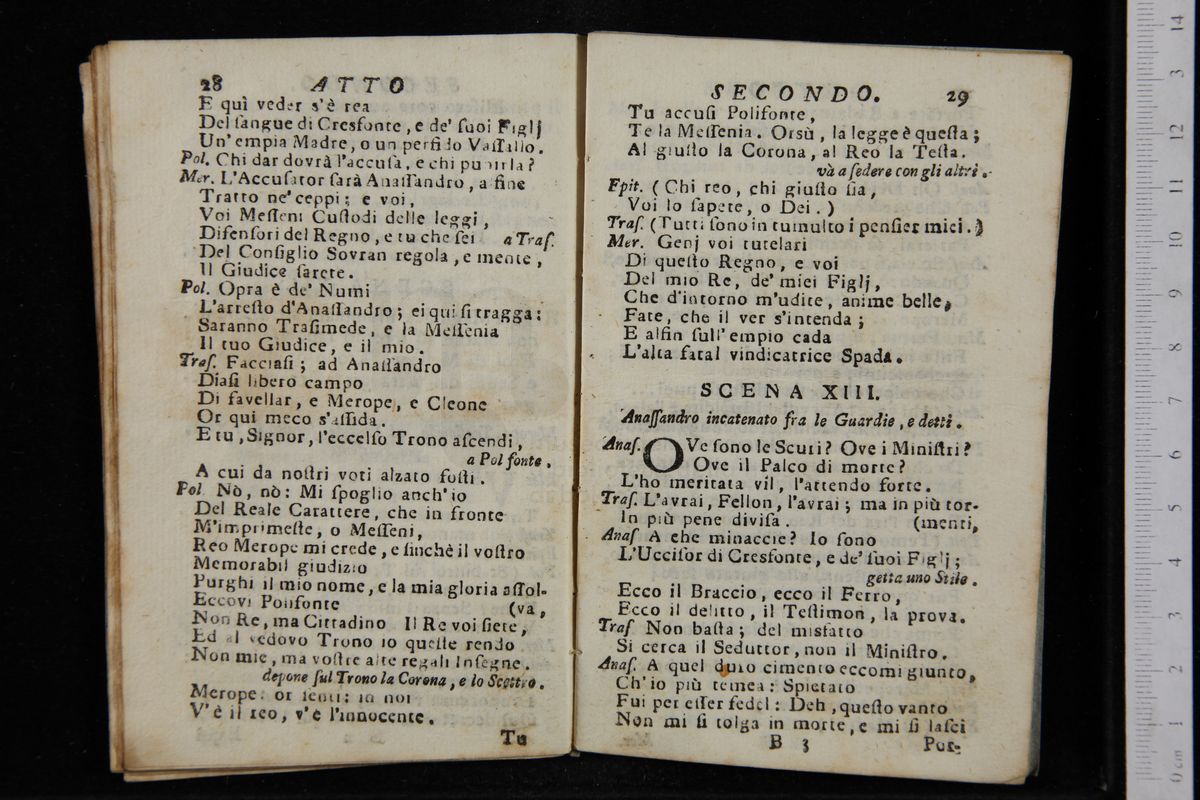 28 ATTO
E quì veder s'è rea
Del ſangue di Cresfonte, e de' ſuoi Figlj
Un' empia Madre, o un perfido Vaſſallo.
Pol. Chi dar dovrà l'accuſa, e chi punirla?
Mer. L'Accuſator ſarà Anaſſandro, a fine
Tratto ne' ceppi; e voi,
Voi Meſſeni Cuſtodi delle leggi,
Difenſori del Regno, e tu che ſei a Traſ.
Del Conſiglio Sovran regola, e mente,
Il Giudice ſarete.
Pol. Opra è de' Numi
L'arreſto d'Anaſſandro; ei quì ſi tragga:
Saranno Traſimede, e la Meſſenia
Il tuo Giudice, e il mio.
Traſ. Facciaſi; ad Anaſſandro
Diaſi libero campo
Di favellar, e Merope, e Cleone
Or qui meco s'aſſida.
E tu, Signor, l'eccelſo Trono aſcendi,
a Pol fonte.
A cui da noſtri voti alzato foſti.
Pol Nò, nò: Mi ſpoglio anch'io
Del Reale Carattere, che in fronte
M'imprimeſte, o Meſſeni,
Reo Merope mi crede, e finchè il voſtro
Memorabil giudizio
Purghi il mio nome, e la mia gloria aſſol-
Eccovi Polifonte (va,
Non Re, ma Cittadino Il Re voi ſiete,
Ed al vedovo Trono io queſte rendo
Non mie, ma voſtre alte regali Inſegne.
depone ſul Trono la Corona, e lo Scettro.
Merope: or ſenti: in noi
V'è il reo, v'è l'innocente.
Tu
SECONDO. 29
Tu accuſi Polifonte,
Te la Meſſenia. Orsù, la legge è queſta;
Al giuſto la Corona, al Reo la Teſta.
và a ſedere con gli altri.
Epit. (Chi reo, chi giuſto ſia,
Voi lo ſapete, o Dei.)
Traſ. (Tutti ſono in tumulto i penſier miei.)
Mer. Genj voi tutelari
Di queſto Regno, e voi
Del mio Re, de' miei Figlj,
Che d'intorno m'udite, anime belle,
Fate, che il ver s'intenda;
E alfin ſull' empio cada
L'alta fatal vindicatrice Spada.
SCENA XIII.
Anaſſandro incatenato fra le Guardie, e detti.
Anaſ. OVe ſono le Scuri? Ove i Miniſtri?
Ove il Palco di morte?
L'ho meritata vil, l'attendo forte.
Traſ. L'avrai, Fellon, l'avrai; ma in più tor-
In più pene diviſa. (menti,
Anaſ A che minaccie? Io ſono
L'Ucciſor di Cresfonte, e de' ſuoi Figlj;
getta uno Stilo.
Ecco il Braccio, ecco il Ferro,
Ecco il delitto, il Teſtimon, la prova.
Traſ Non baſta; del misfatto
Si cerca il Seduttor, non il Miniſtro.
Anaſ. A quel duro cimento eccomi giunto,
Ch'io più temea: Spietato
Fui per eſſer fedel: Deh, queſto vanto
Non mi ſi tolga in morte, e mi ſi laſci
B 3 Por-